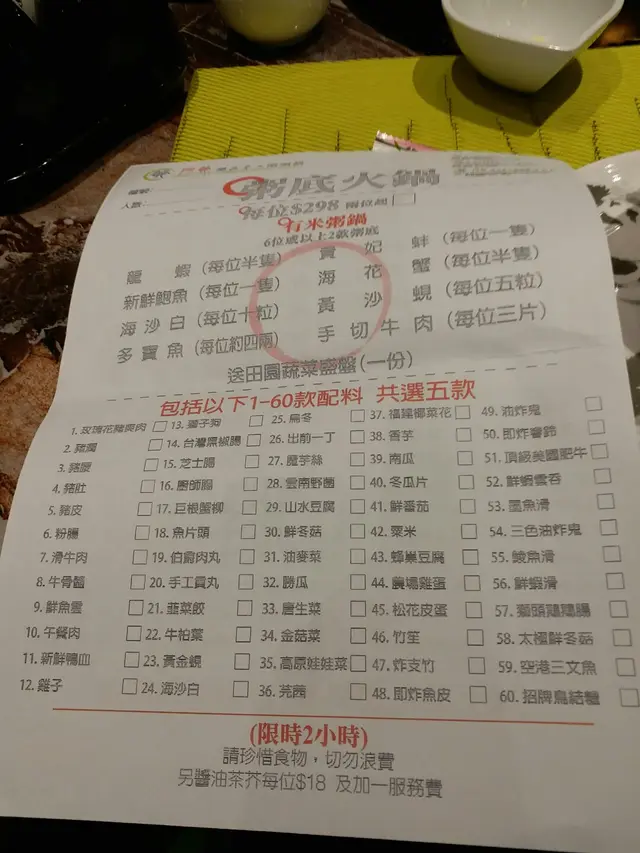 編號:
人數:
粥底火鍋
每位$298 兩位起
有米粥鍋
6位或以上2款粥底
龍 蝦 (每位半隻) 貴 妃 蚌 (每位一隻)
新鮮鮑魚 (每位一隻) 海 花 蟹 (每位半隻)
海 沙 白 (每位十粒) 黃 沙 蜆 (每位五粒)
多 寶 魚 (每位約四兩) 手 切 牛 肉 (每位三片)
送田園蔬菜盛盤(一份)
包括以下1-60款配料 共選五款
1. 玫瑰花豬爽肉 13. 獅子狗 25. 烏冬 37. 福建椰菜花 49. 油炸鬼
2. 豬潤 14. 台灣黑椒腸 26. 出前一丁 38. 香芋 50. 即炸響鈴
3. 豬腰 15. 芝士腸 27. 魔芋絲 39. 南瓜 51. 頂級美國肥牛
4. 豬肚 16. 廚師腸 28. 雲南野菌 40. 冬瓜片 52. 鮮蝦雲吞
5. 豬皮 17. 巨根蟹柳 29. 山水豆腐 41. 鮮番茄 53. 墨魚滑
6. 粉腸 18. 魚片頭 30. 鮮冬菇 42. 粟米 54. 三色油炸鬼
7. 滑牛肉 19. 伯爺肉丸 31. 油麥菜 43. 蜂巢豆腐 55. 鯪魚滑
8. 牛骨髓 20. 手工貢丸 32. 勝瓜 44. 農場雞蛋 56. 鮮蝦滑
9. 鮮魚雲 21. 韮菜餃 33. 唐生菜 45. 松花皮蛋 57.
10. 午餐肉 22. 牛柏葉 34. 金菇菜 46. 竹笙 58. 太極鮮冬菇
11. 新鮮鴨血 23. 黃金蜆 35. 高原娃娃菜 47. 炸支竹 59. 空港三文魚
12. 雞子 24. 海沙白 36. 芫茜 48. 即炸魚皮 60. 招牌鳥結糖
(限時2小時)
請珍惜食物，切勿浪費
另醬油茶芥每位$18 及加一服務費